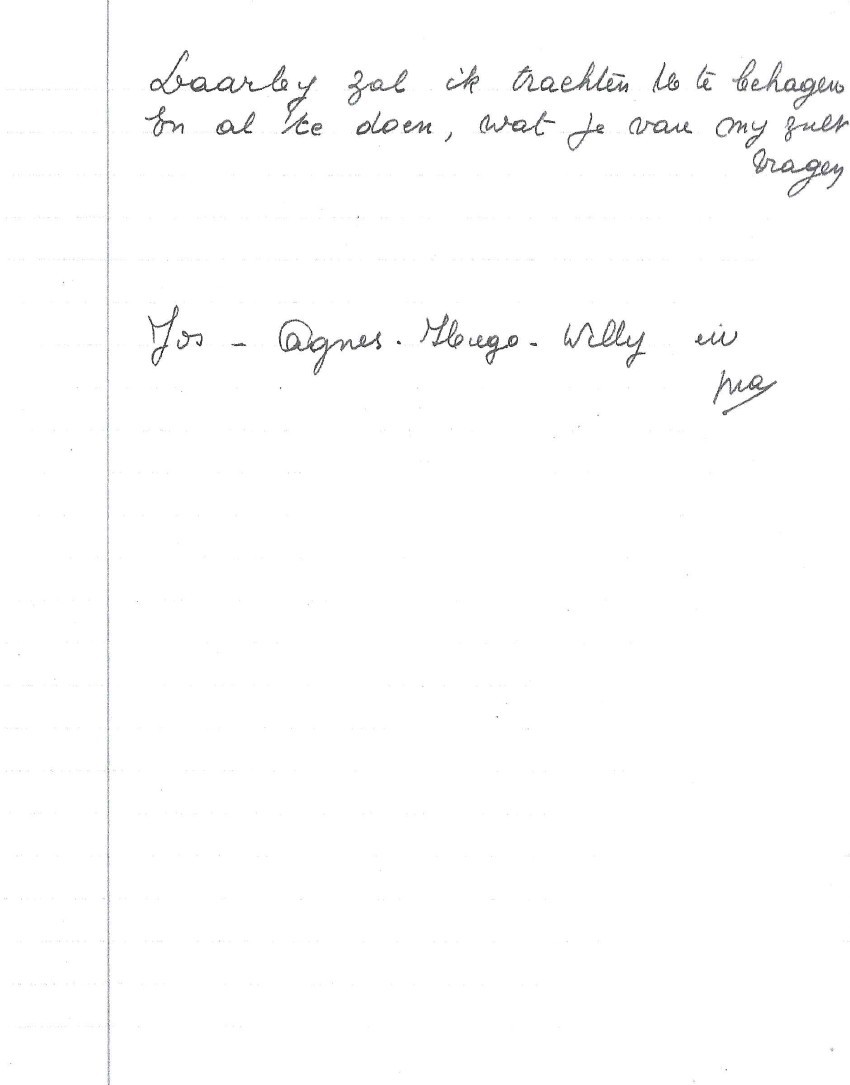 Daarby zal ik trachten U te behagen
En al te doen, wat je van my zult
vragen
Jos - Agnes. Hugo - Willy en